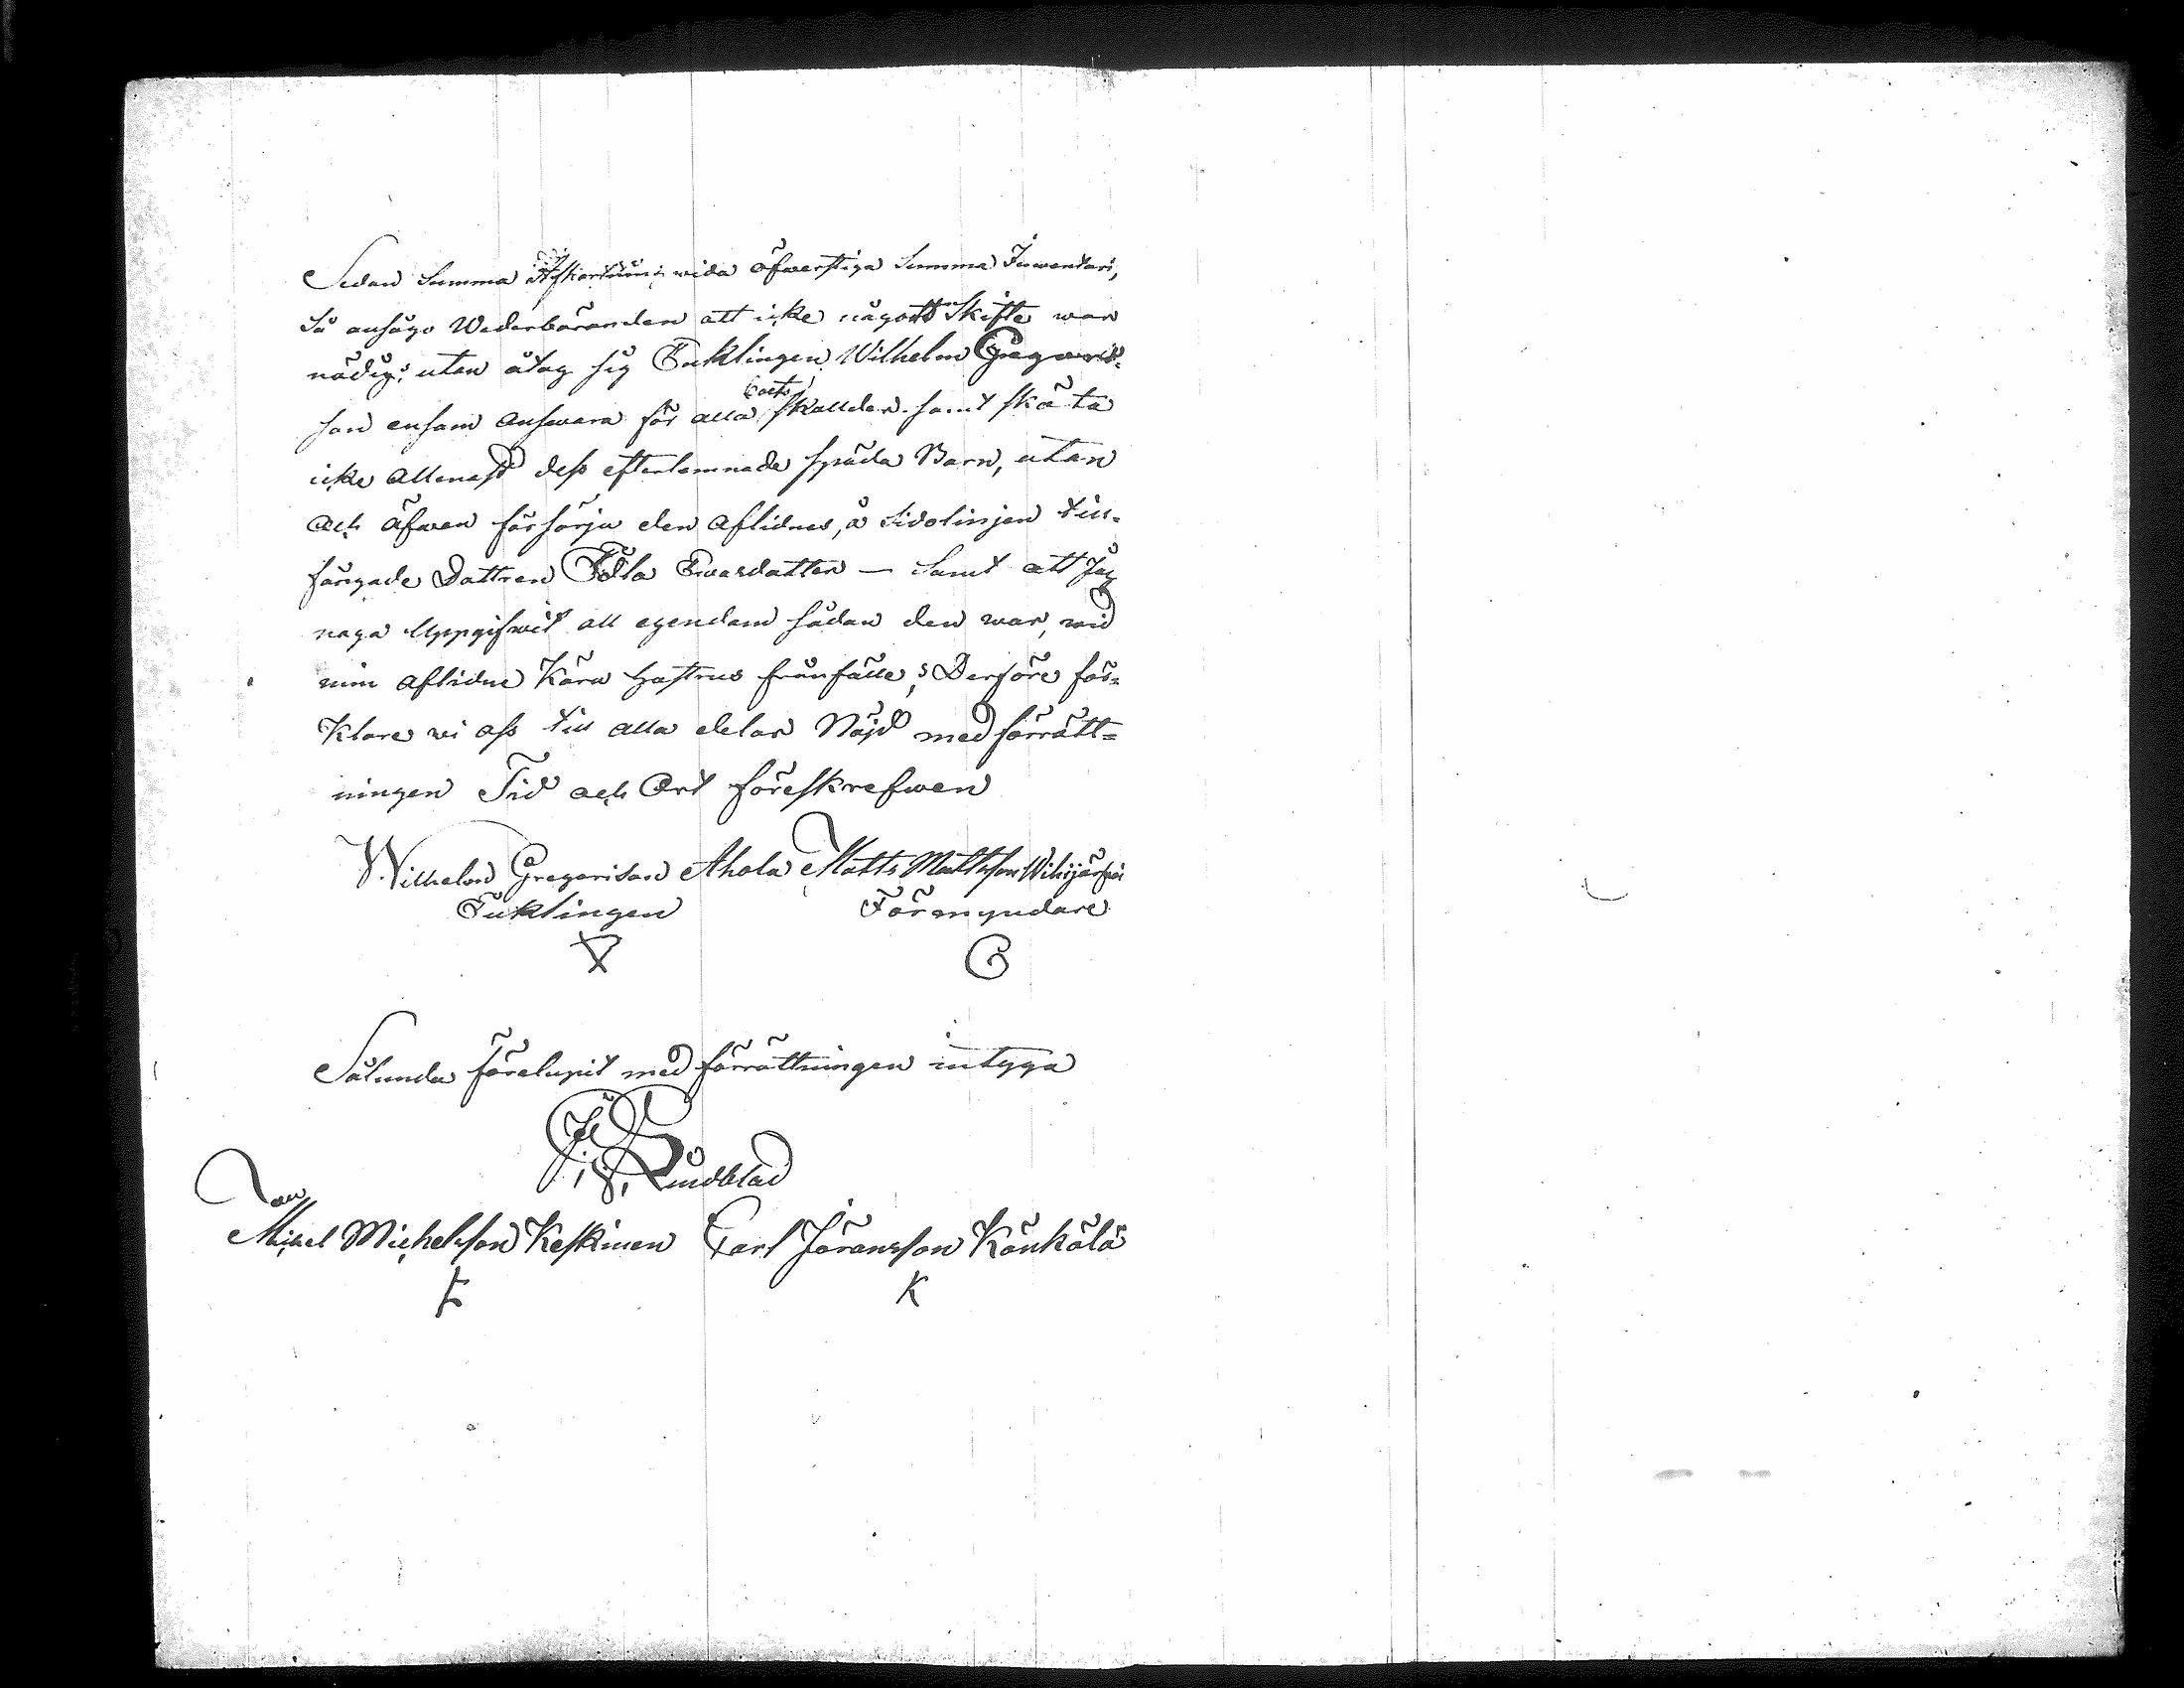 Sedan Summa Afkortning wida öfwerstiga Summa Inwentari,
Så ansågo Wederböranden att icke något Skifte war
nödig: utan åtog sig Enklingen Wilhelm Gregoris-
son ensam answara för alla boets skullder samt skö ta
icke allenast dess efterlemnade späda Barn, utan
och äfwen försörja den aflidnes, å Sidolinjen till-
fångade Dottren Ewasdotter — Samt att Jag
noga Uppgifwit all egendom sådan den war, wid
min aflidne Kära Hustrus frånfälle; Derföre för-
klare wi oss till alla delar Nöjd med förrätt-
ningen Tid och Ort föreskrefwen
Wilhelm Gregorisson Ahola Matts Mattsson
Enklingen Förmyndare
Sålunda förelupit med förrättningen intyga
Lundblad
Michel Michelsson Keskinen Carl Jöransson Könkölä
K